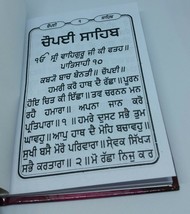 ਚੌਪਈ ਸਾਹਿਬ
ੴ ਸ੍ਰੀ ਵਾਹਿਗੁਰੂ ਜੀ ਕੀ ਫਤਹ॥
ਪਾਤਿਸਾਹੀ ੧੦
ਕਬਯੋ ਬਾਚ ਬੇਨਤੀ॥ ਚੌਪਈ॥
ਹਮਰੀ ਕਰੋ ਹਾਥ ਦੈ ਰੱਛਾ॥ ਪੂਰਨ
ਹੋਇ ਚਿਤ ਕੀ ਇੱਛਾ॥ ਤਵ ਚਰਨਨ ਮਨ
ਰਹੈ ਹਮਾਰਾ॥ ਅਪਨਾ ਜਾਨ ਕਰੋ
ਪ੍ਰਤਿਪਾਰਾ॥੧॥ ਹਮਰੇ ਦੁਸਟ ਸਭੈ ਤੁਮ
ਘਾਵਹੁ॥ ਆਪੁ ਹਾਥ ਦੈ ਮੋਹਿ ਬਚਾਵਹੁ॥
ਸੁਖੀ ਬਸੈ ਮੋਰੋ ਪਰਿਵਾਰਾ॥ ਸੇਵਕ ਸਿੱਖ੍ਯ
ਸਭੈ ਕਰਤਾਰਾ॥੨॥ ਮੋ ਰੱਛਾ ਨਿਜੁ ਕਰ